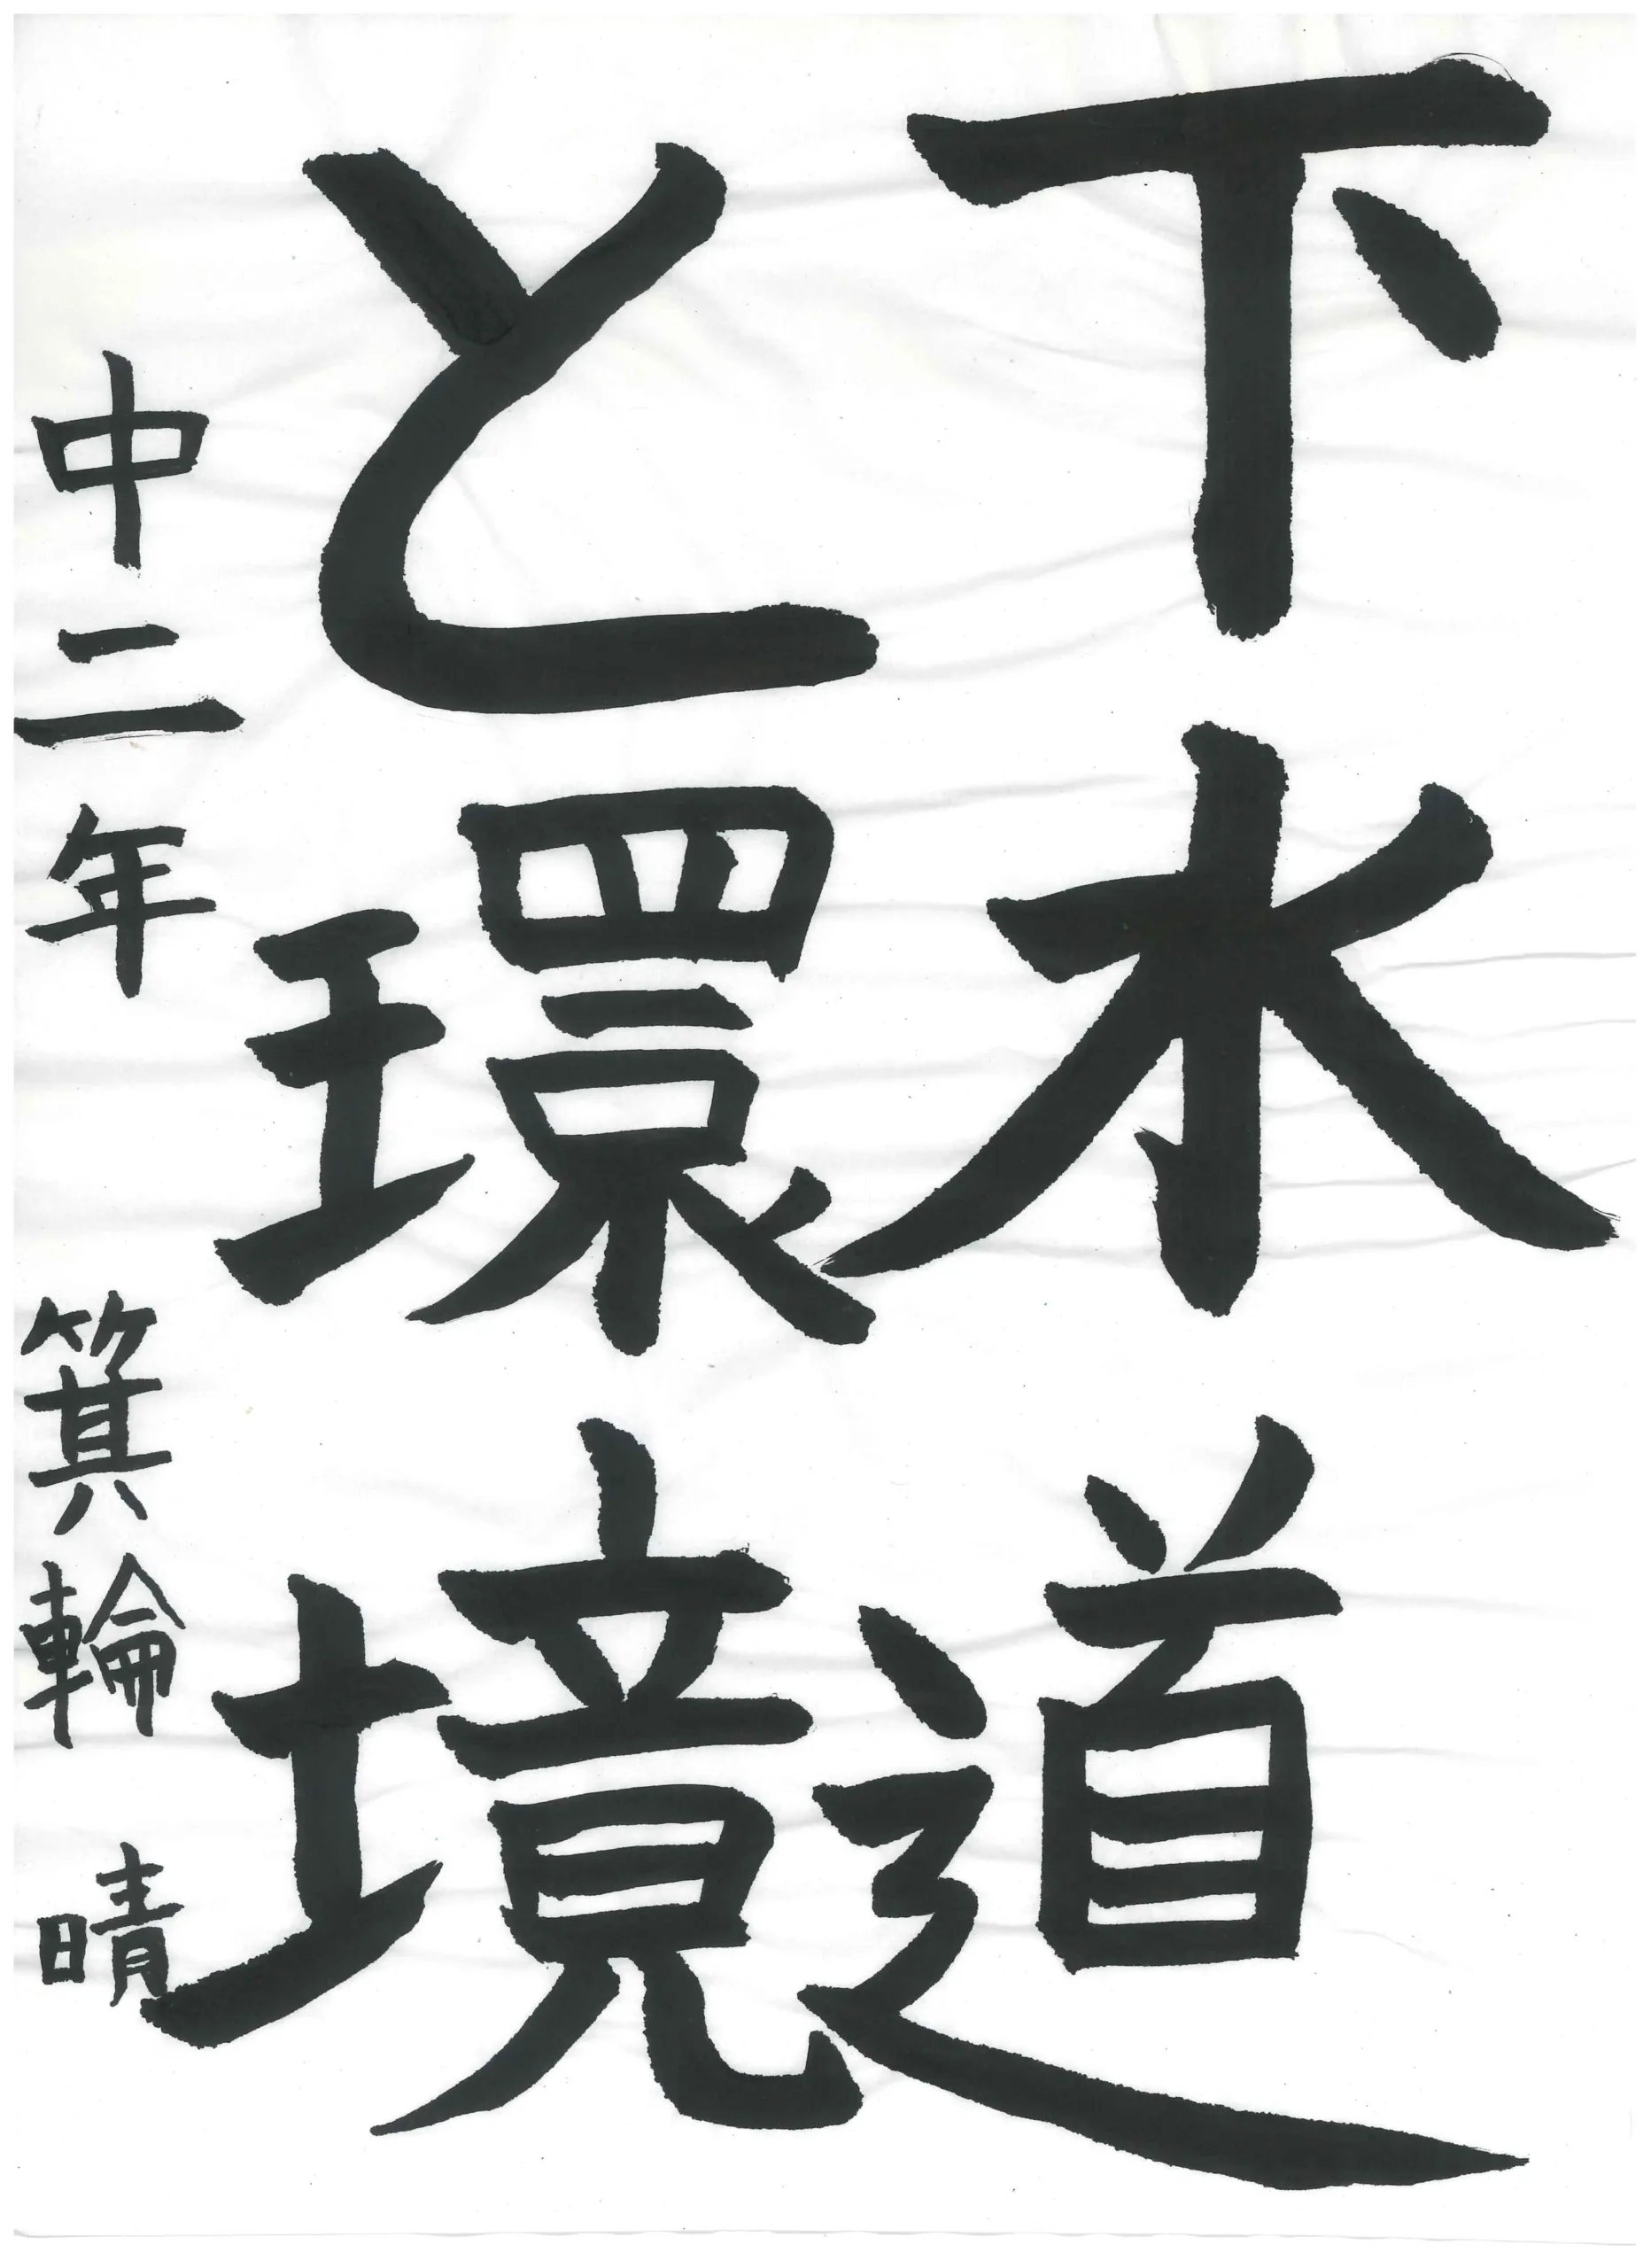 下水道
と環境
中二年 箕輪晴